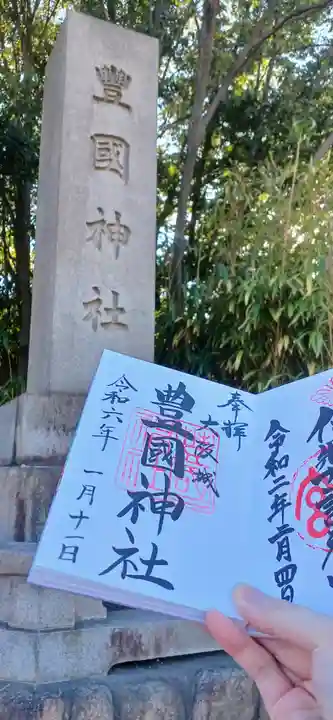 豐國神社
奉拝
大坂城
豊國神社
令和六年 一月十一日
令和二年二月四日